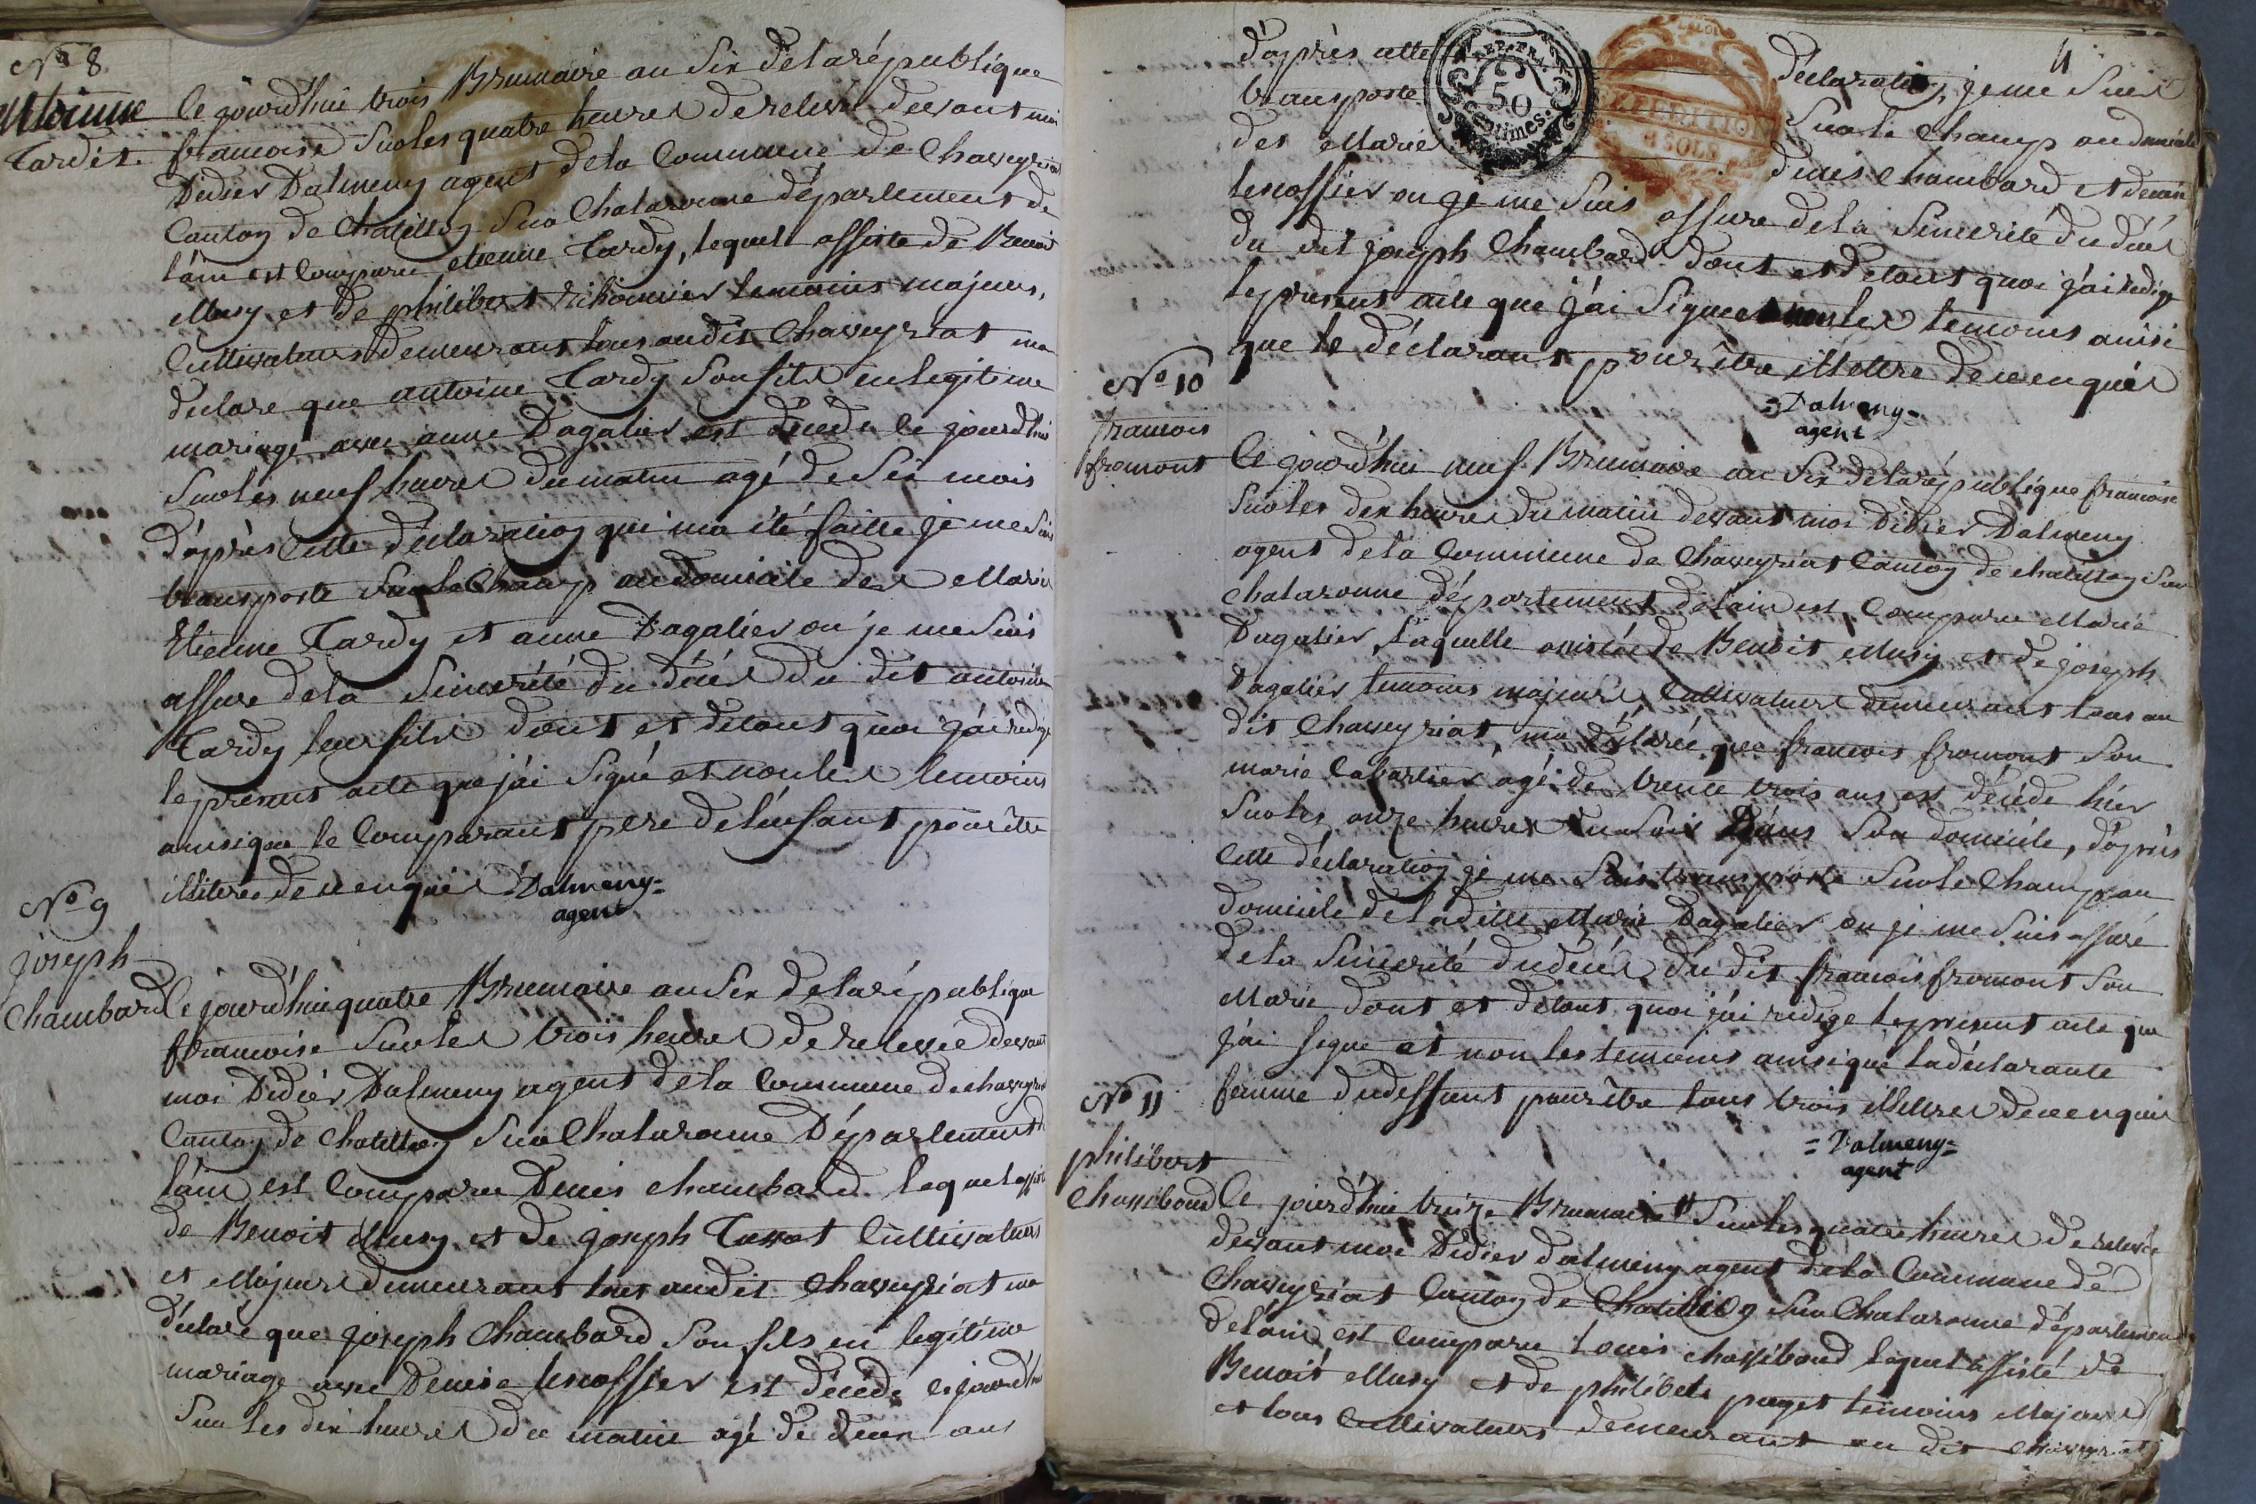 No 8
Antoinne
Tardis
Ce jourd'hui trois Brumaire an Six de la république
francoise Sur les quatre heures de relevée devant moi
Didier Dalmeny agent de la Commune de Chaveyriat
Canton de Chatillon Sur Chalaronne département de
l'ain est Comparu etienne Tardy, lequel assisté de Benoit
Musy et de philibert temoins majeurs,
Cultivateurs demeurans tous au dit Chaveyriat ma
déclaré que antoine Tardy Son fils en legitime
mariage avec anne Dagalier est décédé ce jourd'hui
Sur les neuf heures du matin agé de Six mois
d'après Cette déclaration qui ma été faitte je me Suis
transporté Sur le Champ au domicile des Mariés
Etienne Tardy et anne Dagalier ou je me Suis
assuré de la Sincerité du décés du dit antoine
Tardy leur fils dont et detout quoi j'ai redigé
le présent acte que j'ai Signé et non les temoins
ainsi que le Comparant pere de l'enfant pour être
illitrés de ce enquis Dalmeny=
agent
No 9
joseph
Chambard
Ce jourd'hui quatre Brumaire an Six de la république
francoise Sur les trois heures de relevée devant
moi Didier Dalmeny agent de la Commune de chaveyriat
Canton de Chatillon Sur Chalaronne Département de
l'ain est Comparu Denis Chambard lequel assisté
de Benoit Musy et de joseph Cultivateurs
et Majeurs demeurans tous au dit Chaveyriat ma
déclaré que joseph Chambard Son fils en legitime
mariage avec Denise est décédé ce jourd'hui
Sur les dix heures du matin agé de deux ans
11
d'après cette déclaration, je me Suis
transporté Sur le Champ au domicile
des Mariés denis Chambard et denise
ou je me Suis assuré de la Sincerité du décés
du dit joseph Chambard dont et detout quoi j'ai redigé
le présent acte que j'ai Signé et non les temoins ainsi
que le déclarant pour être illettré de ce enquis
=Dalmeny=
agent
REP. FRA.
50
Centimes.
LA LOI
EXPEDITION
4 SOLS
No 10
francois
fromont
Ce jourd'hui neuf Brumaire an Six de la république francoise
Sur les dix heures du matin devant moi Didier Dalmeny
agent de la Commune de Chaveyriat Canton de chatillon Sur
Chalaronne département de lain est Comparu Marie
Dagalier Laquelle assistée de Benoit Musy et de joseph
Dagalier temoins majeurs, Cultivateurs demeurans tous au
dit Chaveyriat, ma déclarée que francois fromont Son
marie Cabartier agé de trente trois ans est décédé hier
Sur les onze heures du Soir Dans Son domicile, d'après
Cette déclaration je me Suis transporté Sur le Champ au
domicile de la ditte Marie Dagalier ou je me Suis assuré
de la Sincerité du décés du dit francois fromont Son
Marie dont et detout quoi j'ai redigé le présent acte que
j'ai Signé et non les temoins ainsi que la déclarante
femme du deffunt pour être tous trois illettrés de ce enquis
=Dalmeny=
agent
No 11
philibert
Chassiboud
Ce jourd'hui treize Brumaire Sur les quatre heures de relevée
devant moi Didier dalmeny agent de la Commune de
Chaveyriat Canton de Chatillon Sur Chalaronne département
de l'ain est Comparu Louis chassiboud lequel assisté de
Benoit Musy et de philibert puget temoins Majeurs
et tous Cultivateurs demeurant au dit Chaveyriat